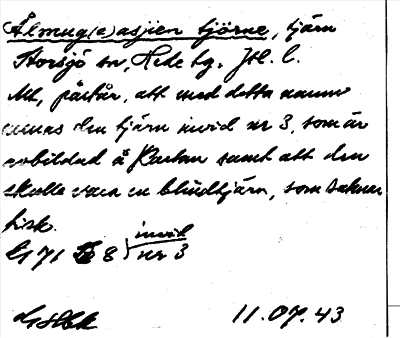 Ålmug(e)asjien tjärne, tjärn
Storsjö sn, Hede tg. Jtl. l.
Ml, påstår, att med detta namn
menas den tjärn invid nr 3, som är
avbildad å Kartan samt att den
skulle vara en blindtjärn, som saknar
fisk.
invid
71 8 nr 3
11.07.43